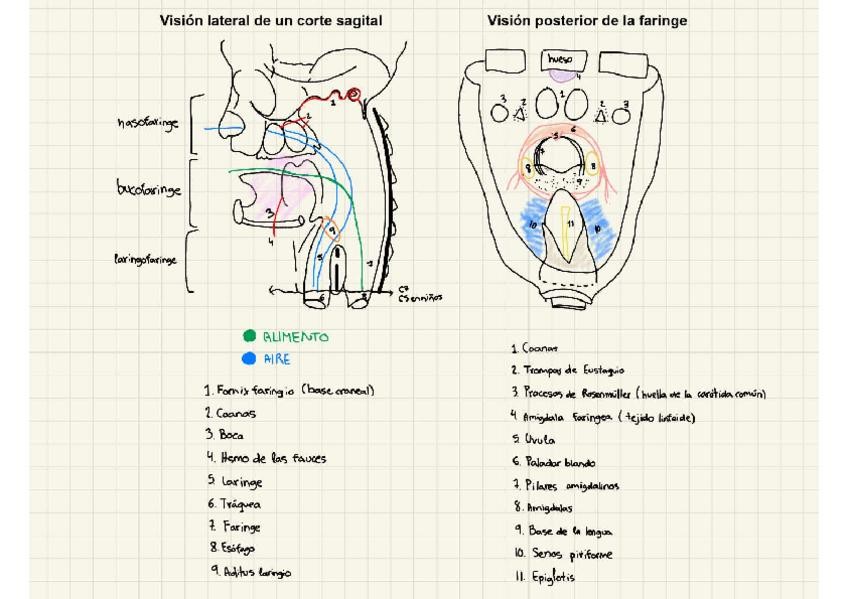 Visión lateral de un corte sagital
Visión posterior de la faringe
nasofaringe
bucofaringe
laringofaringe
C7
C5 en niños
hueso
ALIMENTO
AIRE
1. Fornix faringio (base craneal)
2. Coanas
3. Boca
4. Itsmo de las fauces
5. Laringe
6. Tráquea
7. Faringe
8. Esófago
9. Aditus laringio
1. Coanas
2. Trompas de Eustaquio
3. Procesos de Rosenmüller (huella de la carótida común)
4. Amigdala faringea (tejido linfoide)
5. Uvula
6. Paladar blando
7. Pilares amigdalinos
8. Amigdalas
9. Base de la lengua
10. Senos piriforme
11. Epiglotis